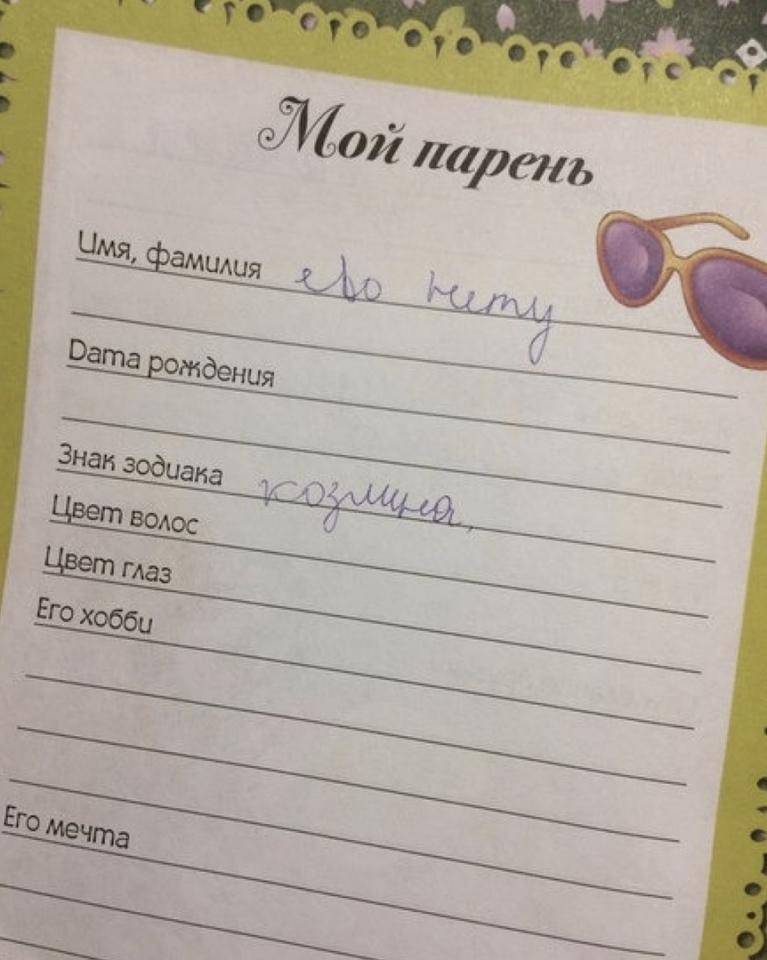 Мой парень
Имя, фамилия ево нету
Дата рождения
Знак зодиака козлина,
Цвет волос
Цвет глаз
Его хобби
Его мечта